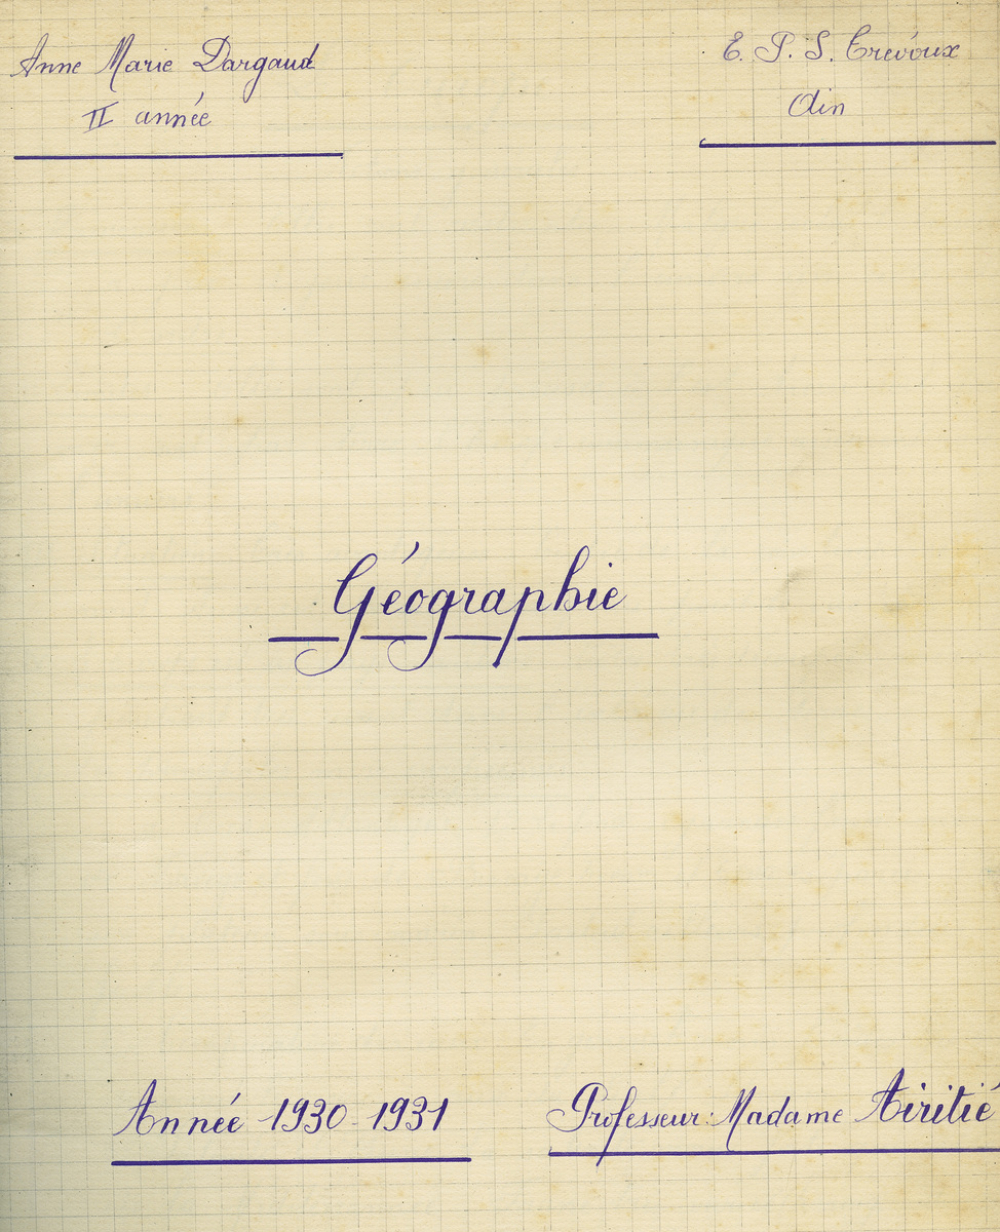 Anne Marie Dargaud
II année
E. P. S. Trévoux
Ain
Géographie
Année 1930-1931
Professeur: Madame Airitié